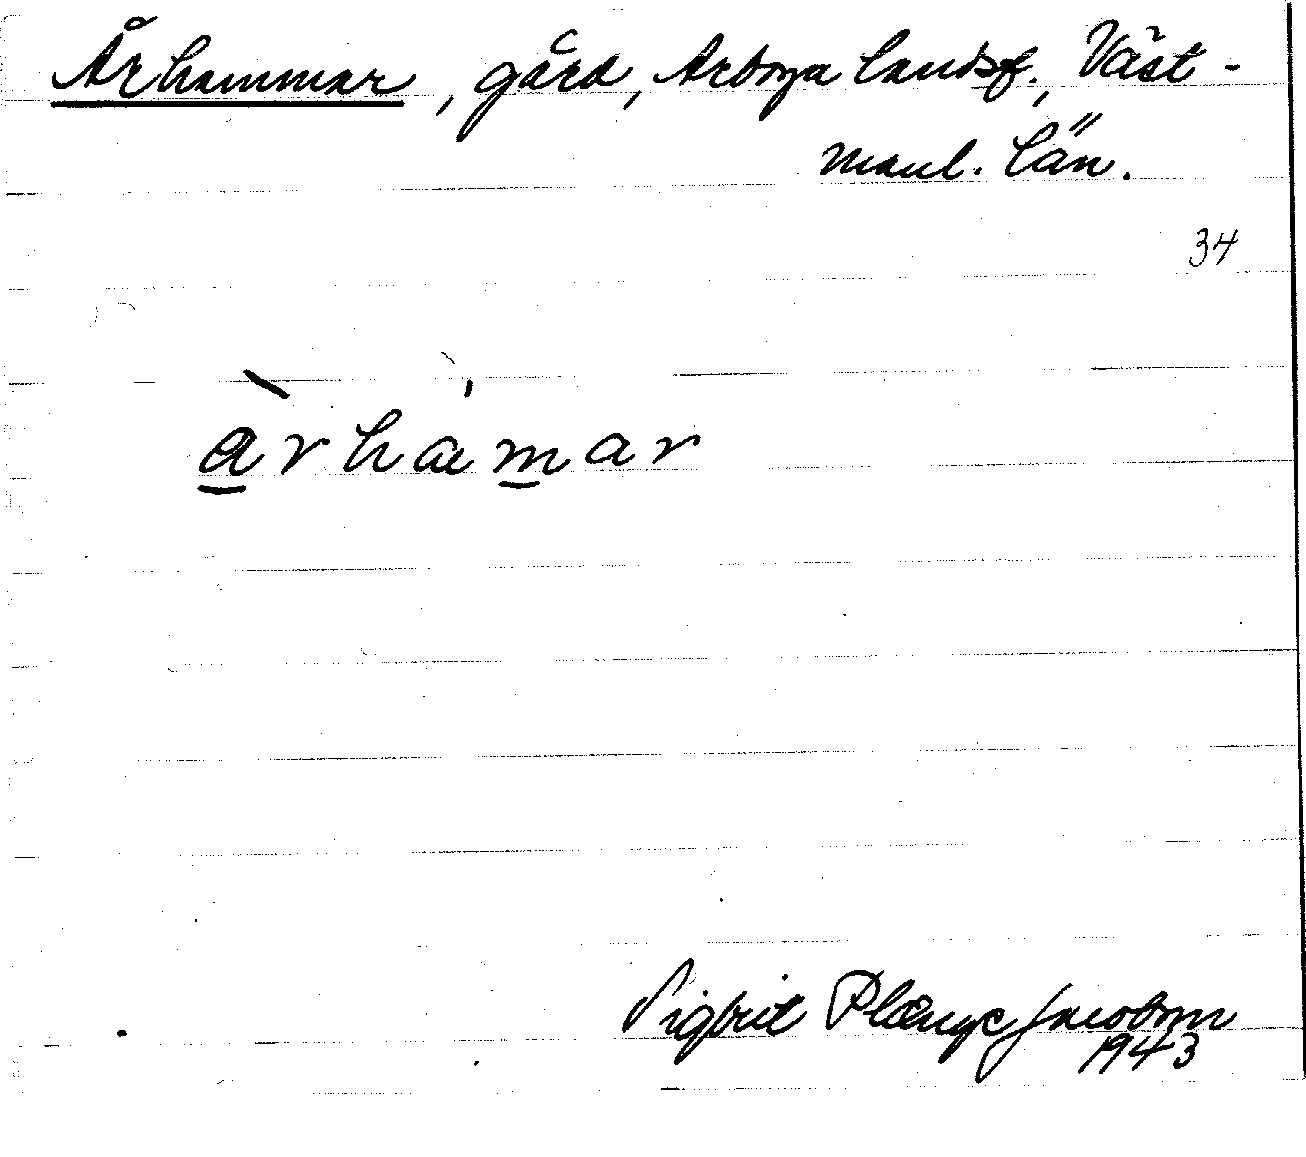 Århammar, gård, Arboga landsf., Väst-
manl. län.
34
àrhàmar
Sigbrit Plænge Jacobson
1943